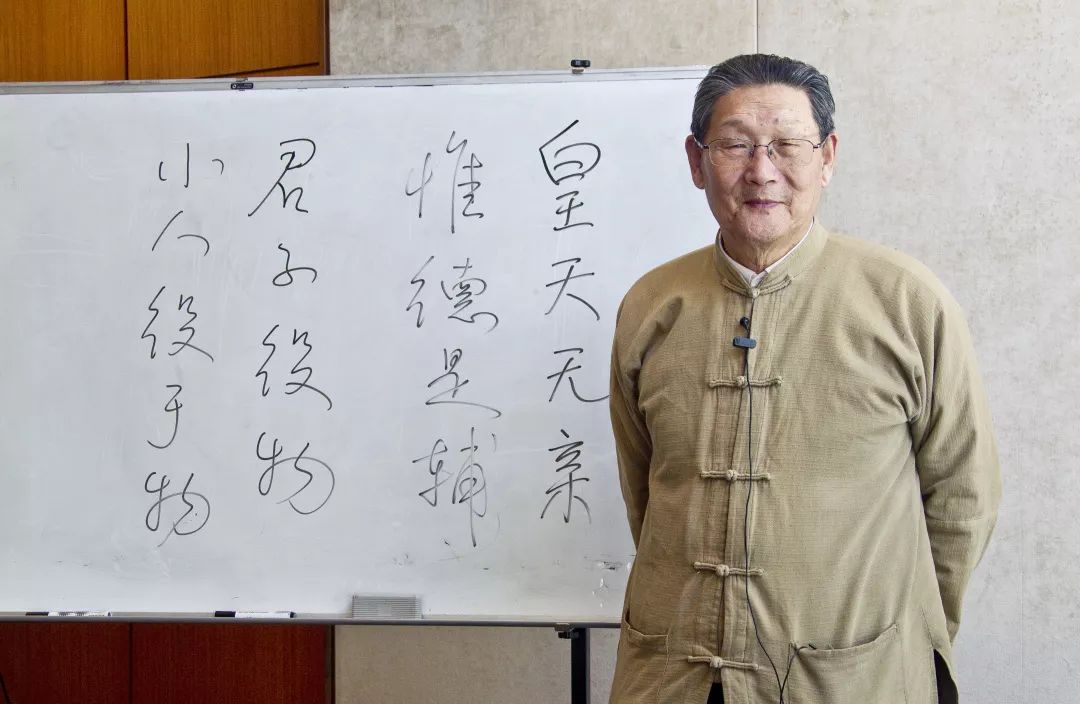 皇天无亲
惟德是辅
君子役物
小人役于物